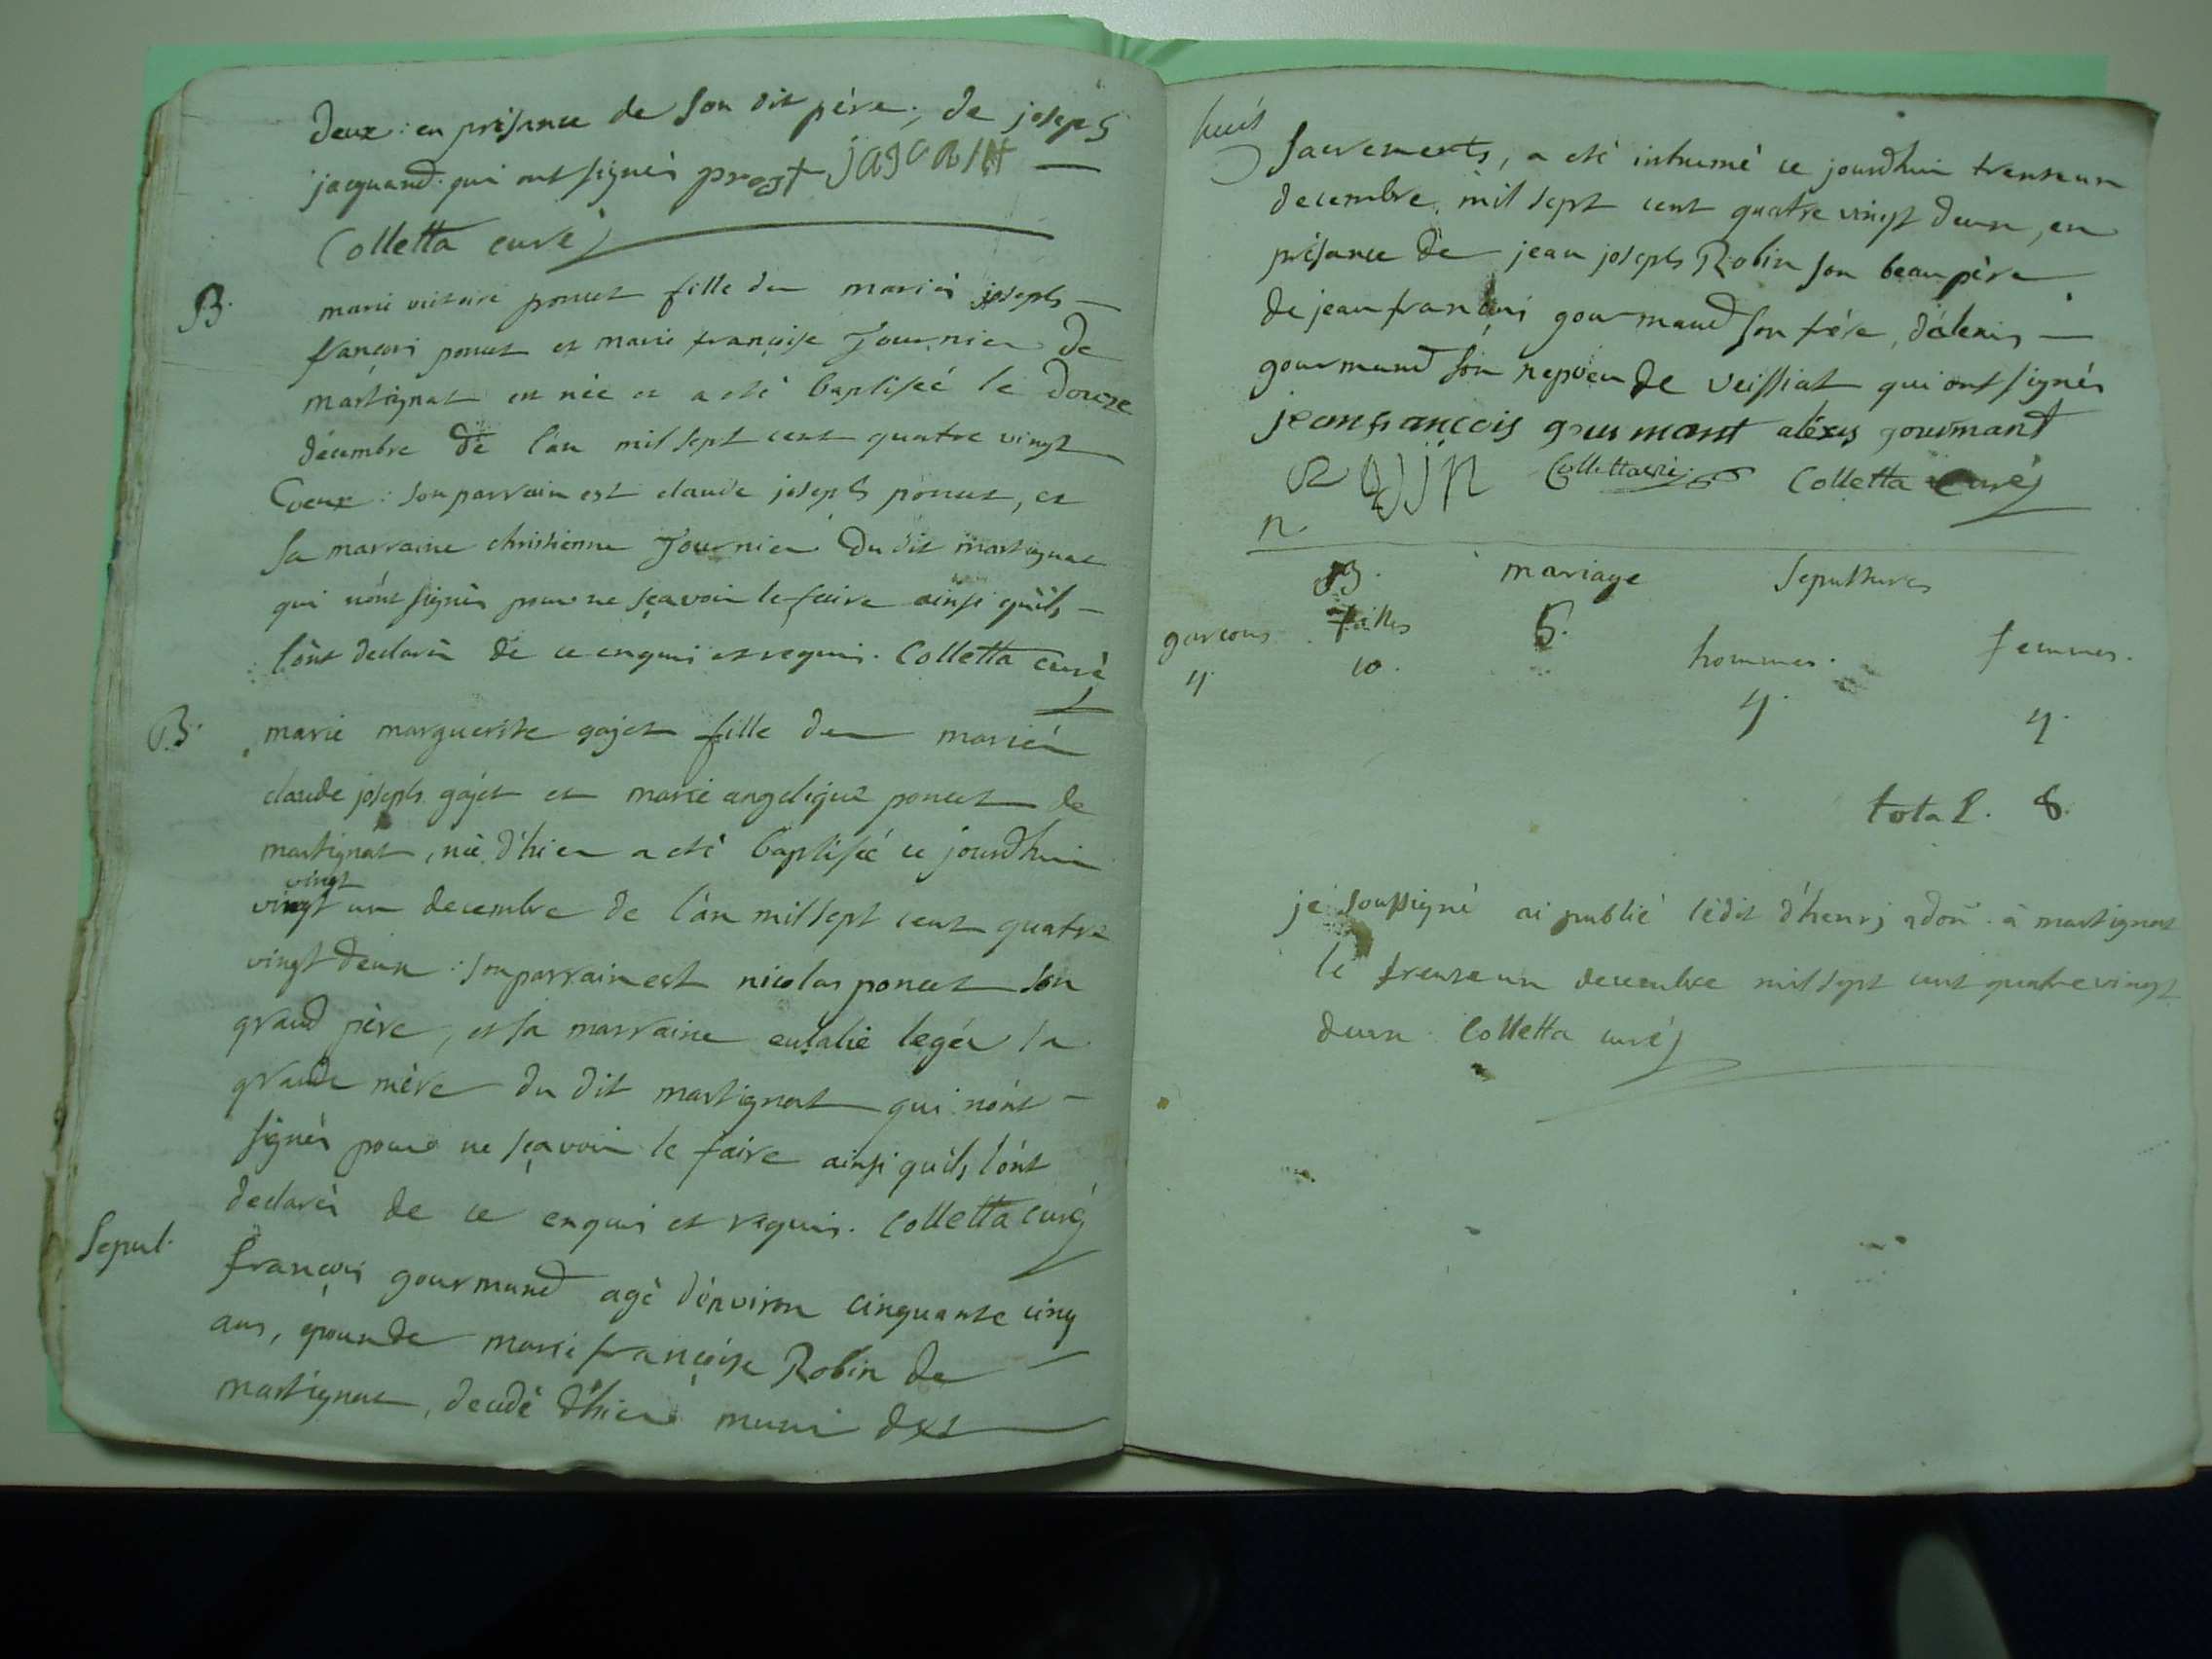 deux : en présance de son dit père, de joseph
jacquand. qui ont signés prost
Colletta curé
B. marie victoire poncet fille des mariés joseph
françois poncet et marie françoise Journier de
martignat est née et a eté baptisée le douze
décembre de l'an mil sept cent quatre vingt
deux : son parrain est claude joseph poncet, et
sa marraine christienne Journier du dit martignat
qui n'ont signés pour ne sçavoir le faire ainsi qu'ils
l'ont declarés de ce enquis et requis. Colletta curé
B. marie marguerite gojet fille des mariés
claude joseph gojet et marie angelique poncet de
martignat, née d'hier a eté baptisée ce jourdhui
vingt
vingt un decembre de l'an mil sept cent quatre
vingt deux : son parrain est nicolas poncet son
grand père, et sa marraine eulalie leger sa
grande mère du dit martignat qui n'ont
signés pour ne sçavoir le faire ainsi qu'ils l'ont
declarés de ce enquis et requis. Colletta curé
Sepul. françois gourmand agé d'environ cinquante cinq
ans, epoux de marie françoise Robin de
martignat, decedé d'hier muni des
huit
sacrements, a eté inhumé ce jourdhui trente un
decembre mil sept cent quatre vingt deux, en
présance de jean joseph Robin son beau père
de jean françois gourmand son frére, d'alexis
gourmand son nepveu de veissiat qui ont signés
jean francois gourmant aléxis gourmant
Colletta curé Colletta curé
n.
B. mariage Sepultures
garcons filles 5. hommes. femmes.
4 10. 4. 4.
total. 8.
je soussigné ai publié l'édit d'henri à martignat
le trente un decembre mil sept cent quatre vingt
deux Colletta curé